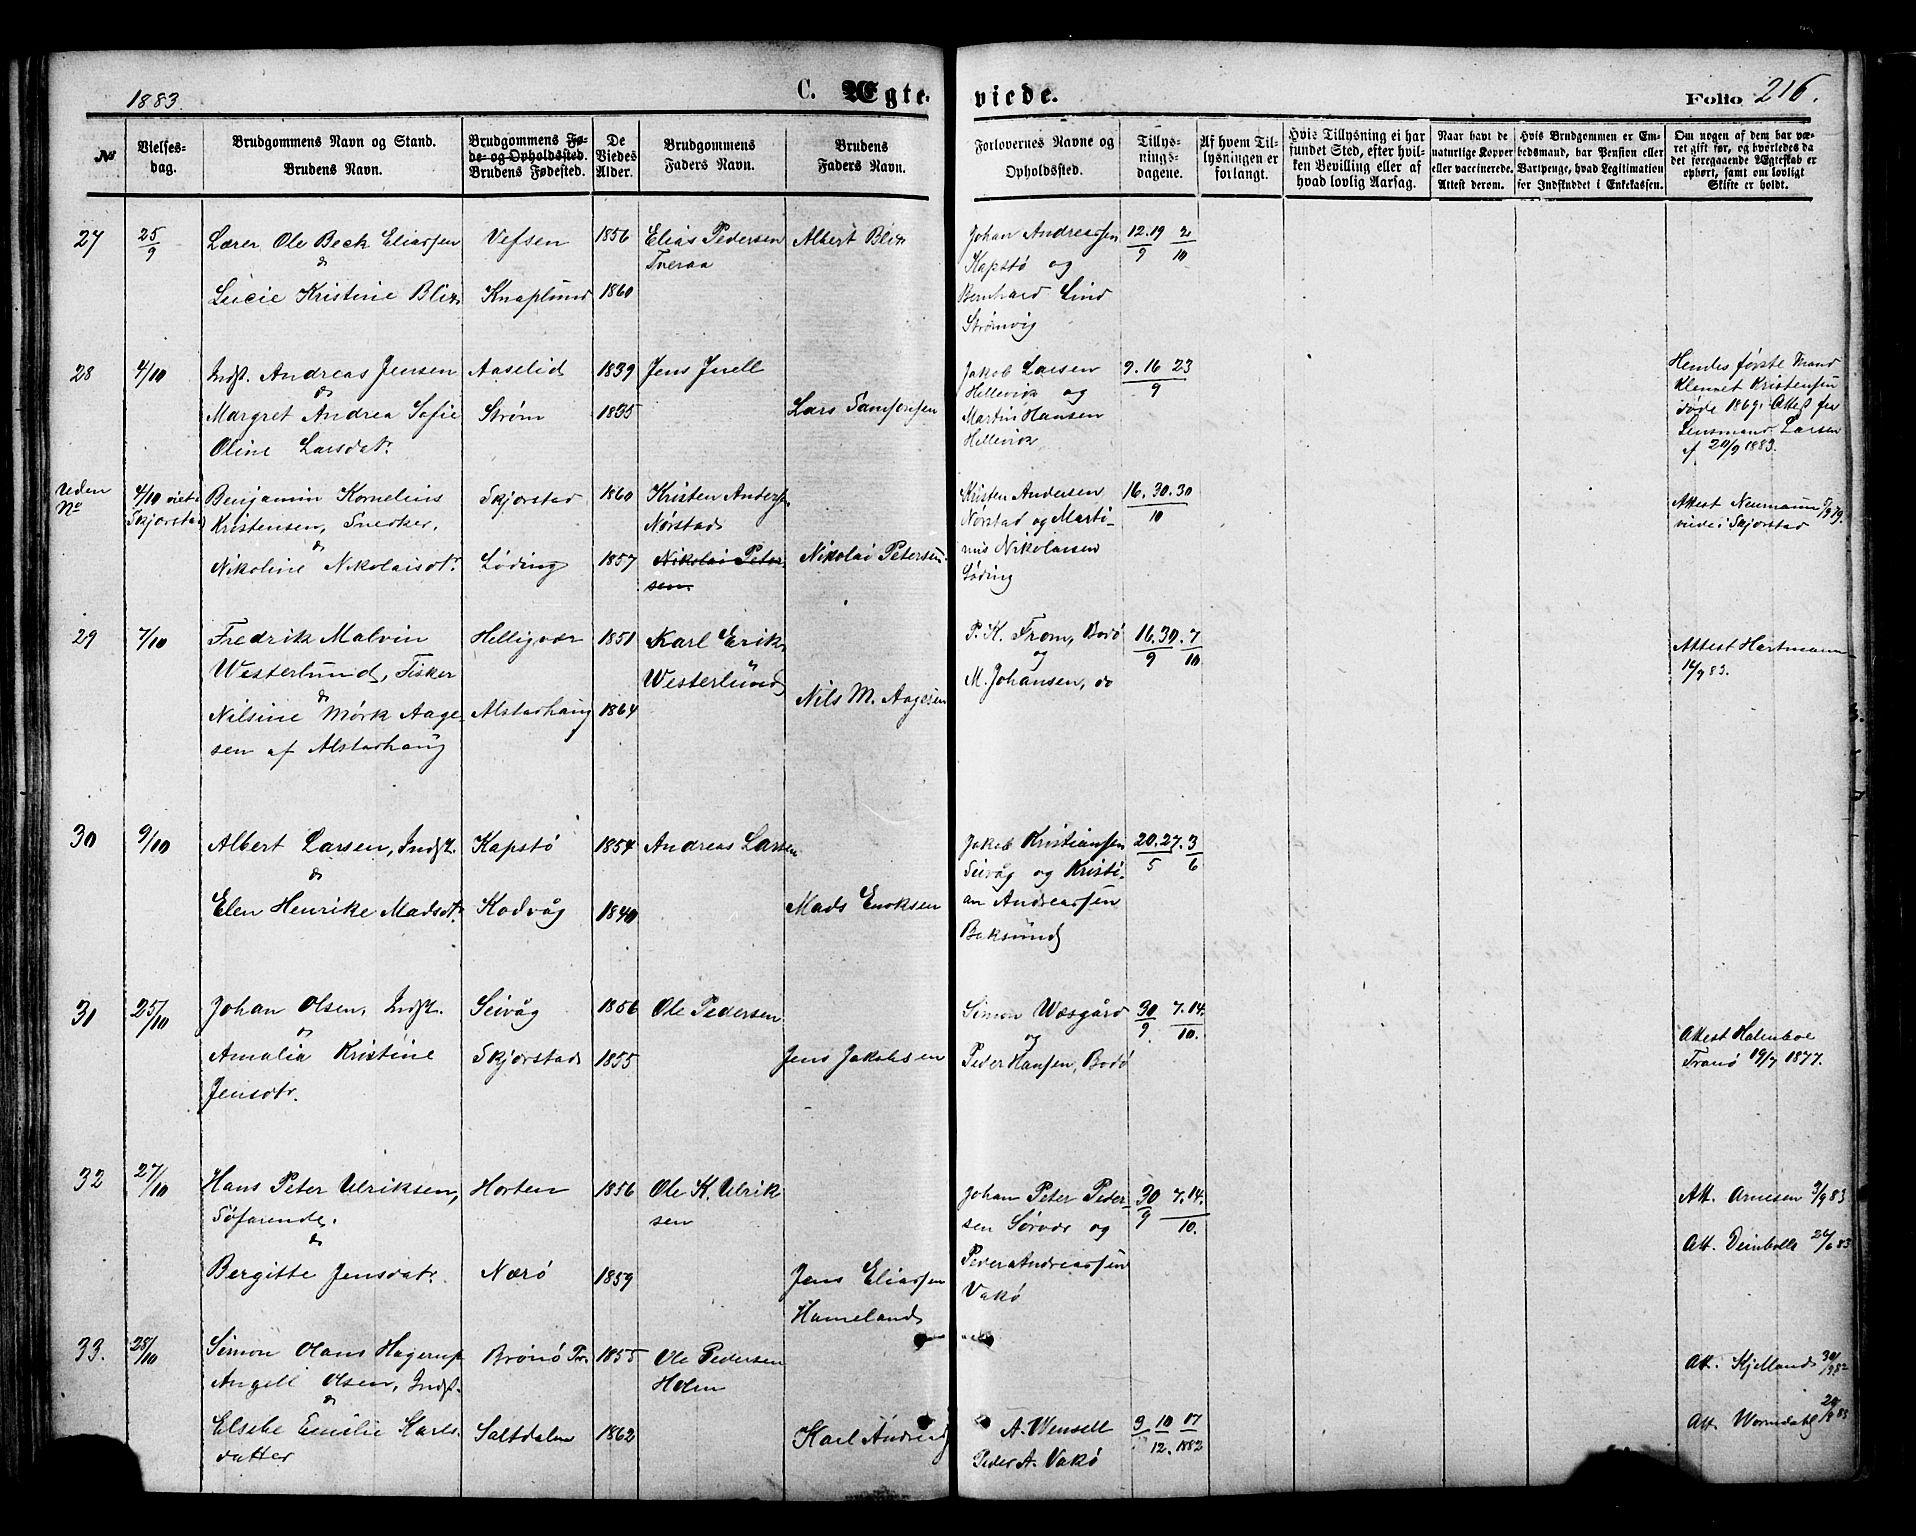 1883.
C. Ægte-
viede.
Folio 216.
№
Vielses-
dag.
Brudgommens Navn og Stand.
Brudens Navn.
Brudgommens Fø-
de- og Opholdssted.
Brudens Fødested.
De
Viedes
Alder.
Brudgommens
Faders Navn.
Brudens
Faders Navn.
Forlovernes Navne og
Opholdssted.
Tillys-
nings-
dagene.
Af hvem Til-
lysningen er
forlangt.
Hvis Tillysning ei har
fundet Sted, efter hvil-
ken Bevilling eller af
hvad lovlig Aarsag.
Naar havt de
naturlige Kopper
eller vaccinerede.
Attest derom.
Hvis Brudgommen er Em-
bedsmand, har Pension eller
Vartpenge, hvad Legitimation
for Indskuddet i Enkekassen.
Om nogen af dem har væ-
ret gift før, og hvorledes da
det foregaaende Ægteskab er
ophørt, samt om lovligt
Skifte er holdt.
27
25/9
Lærer Ole Beck Eliassen
&
Lucie Kristine Blix
Vefsen
Knaplund
1856
1860
Elias Pedersen
Tveraa
Albert Blix
Johan Andreassen
Kapstø og
Bernhard Lind
Strømvig
12. 19/9 2/10
28
4/10
Indst. Andreas Jensen
&
Margret Andrea Sofie
Oline Larsdatr.
Aaselid
Strøm
1839
1835
Jens Juell
Lars Samsonsen
Jakob Larsen
Hellevik og
Martin Hansen
Hellevik
9. 16 23/9
Hendes første Mand
Klemet Kristensen
døde 1869. Attest fra
Lensmand Larsen
af 20/9 1883.
Uden
No
4/10 viet i
Skjerstad
Benjamin Kornelius
Kristensen, Snedker.
&
Nikoline Nikolaisdtr.
Skjerstad
Løding
1860
1857
Kristen Anders.
Nørstad
Nikolai Peter
sen.
Nikolai Petersen
Kristen Andersen
Nørstad og Marti-
nus Nikolaisen
Løding
16. 30. 30/10
Attest Neumann 5/9 79.
viede i Skjerstad
29
7/10
Fredrik Malvin
Westerlund, Fisker
&
Nilsine Mørk Aage
sen af Alstadhaug
Helligvær
Alstadhaug
1851
1864
Karl Erik
Westerlund
Nils M. Aagesen
P. K. From, Bodø
og
M. Johansen, do
16. 30/9. 7/10
Attest Hartmann
14/9 83.
30
9/10
Albert Larsen, Indst.
&
Elen Henrike Madsdtr.
Kapstø
Kodvåg
1854
1840
Andreas Larsen
Mads Enoksen
Jakob Kristiansen
Seivåg og Kristi-
an Andreassen
Baksund
20. 27/5. 3/6
31
25/10
Johan Olsen, Indst.
&
Amalia Kristine
Jensdtr.
Seivåg
Skjerstad
1856
1855
Ole Pedersen
Jens Jakobsen
Simon Wæsgård
og
Peder Hansen, Bodø
30/9 7. 14./10.
Attest Holmboe
Tranø 19/7 1877.
32
27/10
Hans Peter Ulriksen,
Søfarende.
&
Bergitte Jensdatr.
Horten
Nærø
1856
1859
Ole K. Ulrik
sen
Jens Eliassen
Hameland
Johan Peter Peder-
sen Sørvær og
Peder Andreassen
Vakø
30/9 7. 14./10.
Att. Arnesen 3/9 83
Att. Deinboll 24/6 83
33.
28/10
Simon Olaus Hagerup
Angell Olsen, Indst.
&
Elsebe Emilie Karls
datter
Brønø Pr.
Saltdalen
1855
1862
Ole Pedersen
Holm
Karl Andreas
A. Wensell
Peder A. Vakø
3 10 17/12. 1882
Att. Kjelland
Att. Wormdahl